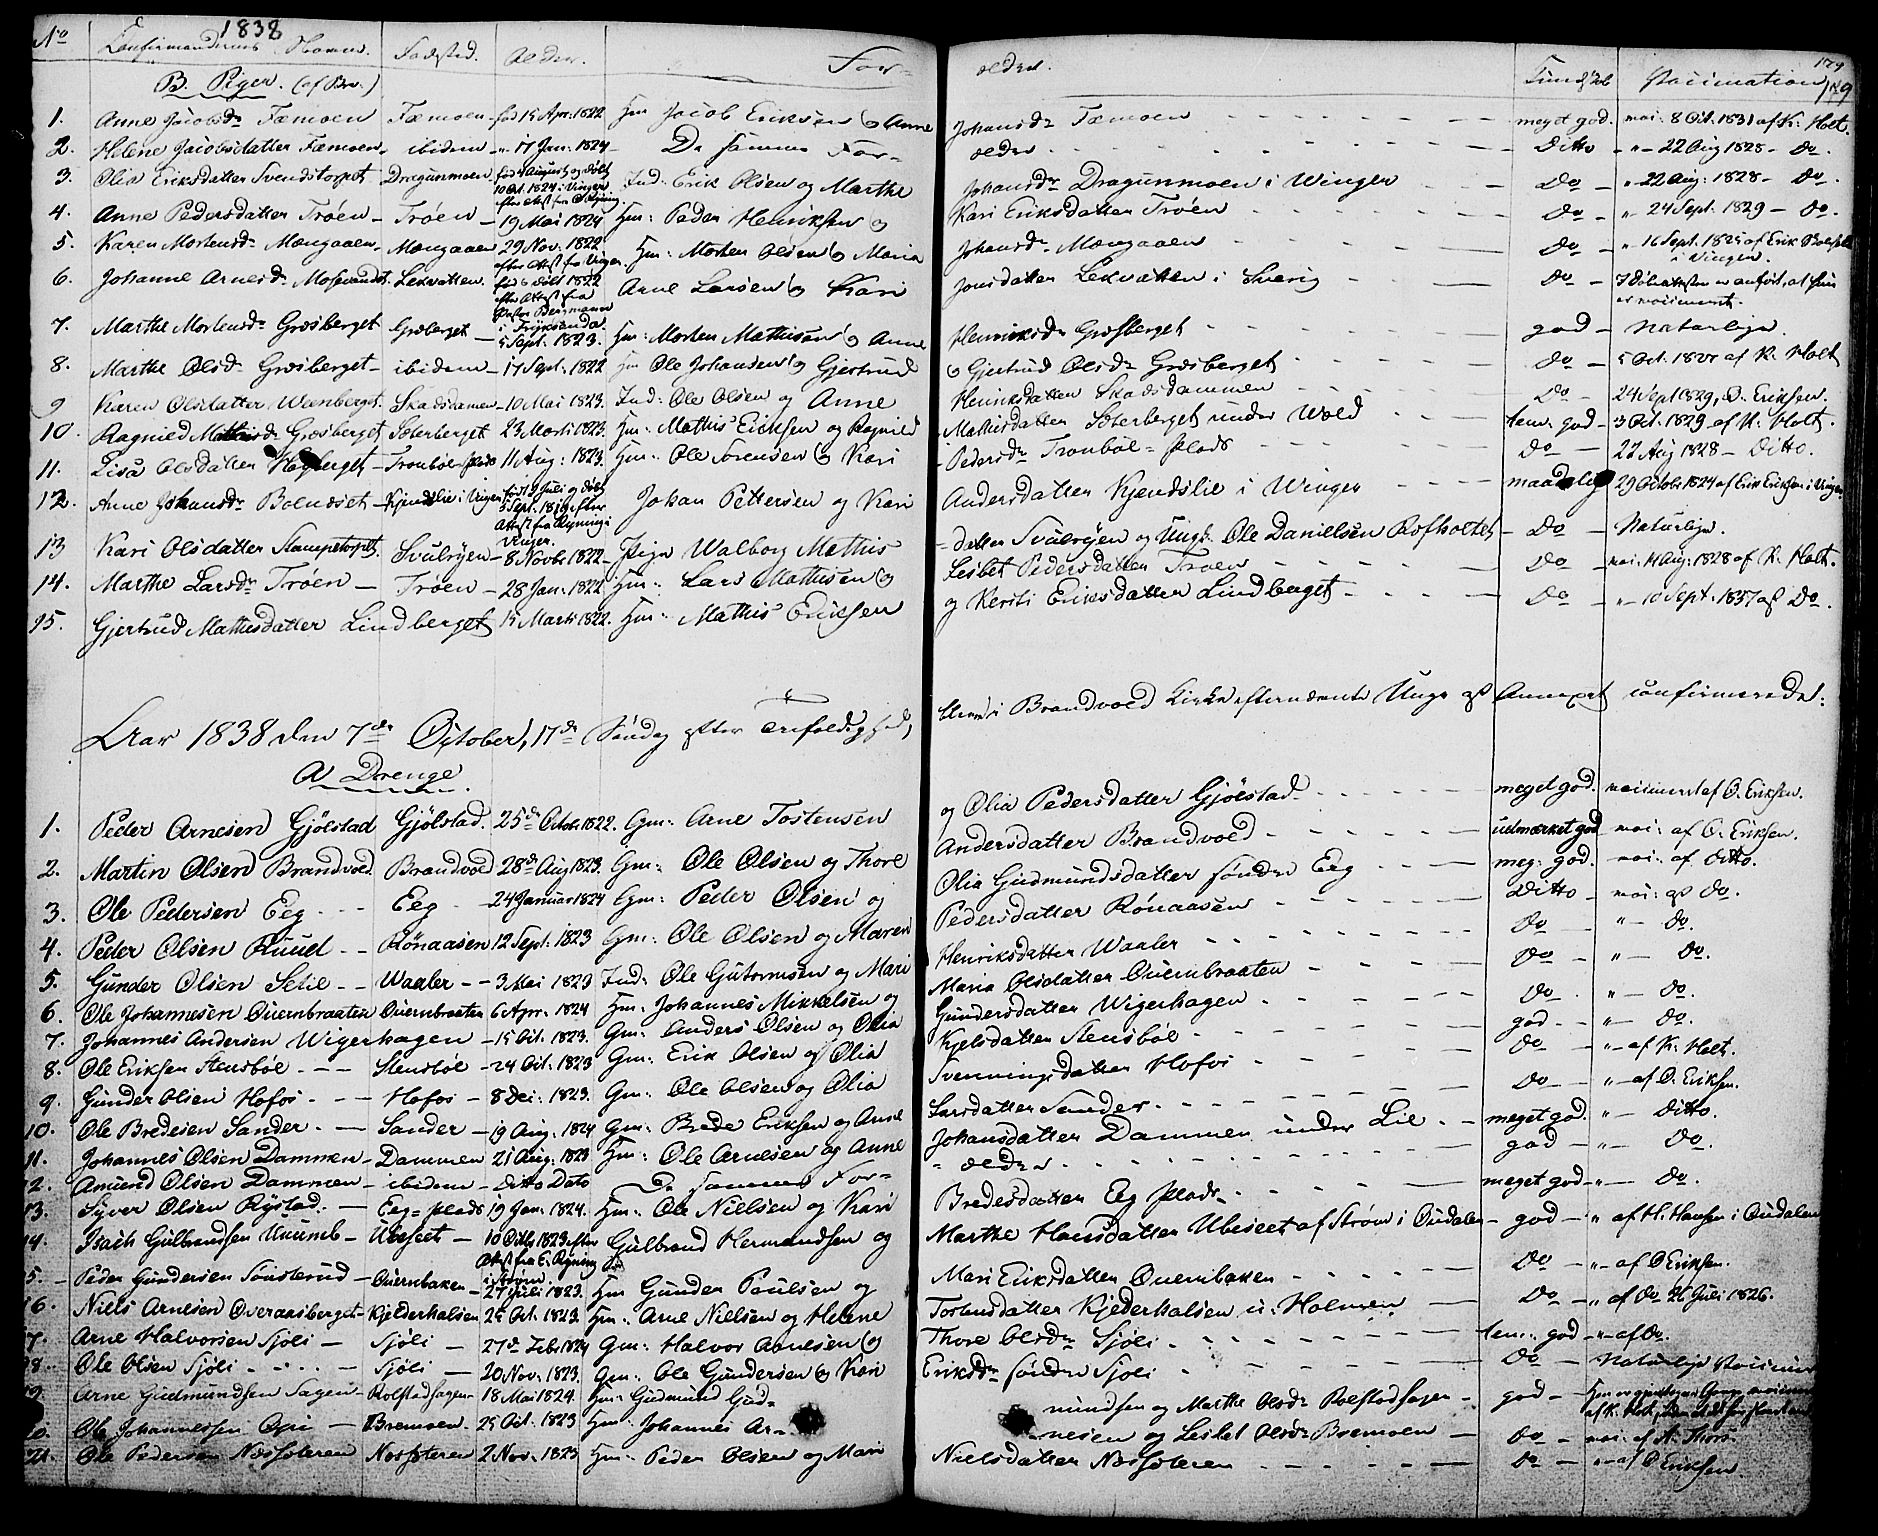 1838
No Confirmandernes Navne. Fødested. Alder. For- ældre. Kundskab Vaccination 179
B. Piger. (af Br.)
1. Anne Jacobsdr Fæmoen Fæmoen fød 15 Apr. 1822 Hm Jacob Eriksen og Anne Johansdr Fæmoen meget god. vac. 8 Oct. 1831 af K. Holt.
2. Helene Jacobsdatter Fæmoen ibidem " 17 Jan. 1824 De samme For- ældre Ditto " 22 Aug 1828 Do.
3. Olia Eriksdatter Svendstorpet Dragunmoen fød 4 August og døbt 10 Oct. 1824 i Vinger efter Attest fra Ind: Erik Olsen og Marthe Johansdr Dragunmoen i Winger Do " 22 Aug: 1828 Do.
4. Anne Pedersdatter Trøen Trøen 19 Mai 1824 Hm: Peder Henriksen og Kari Eriksdatter Trøen Do " 24 Sept. 1829 Do.
5. Karen Mortensdr Mængaaen Mængaaen 29 Nov. 1822 efter Attest fra Vinger Hm: Morten Olsen og Maria Johansdr Mængaaen Do " 16 Sept. 1825 af Erik i Vinger.
6. Johanne Arnesdr Mosevandet Lekvatten fød og døbt 1822 efter Attest fra Pastor Bergmann i Fryksende Arne Larsen og Kari Jonsdatter Lekvatten i Sverig Do I Døbeattesten er anført, at hun er vaccineret.
7. Marthe Mortensdr Græsberget Græberget 5 Sept. 1823. Hm: Morten Mathisen og Anne Henriksdr Græsberget god Naturlige.
8. Marthe Olsdr Græsberget ibidem 17 Sept. 1822 Hm Ole Johansen og Gjertrud og Gjertrud Olsdr Græsberget Do 5 Oct. af K. Holt
9 Karen Olsdatter Weenberget Skadsdamen 10 Mai 1823. Ind: Ole Olsen og Anne Henriksdatter Skadsdammen Do 24 Sept 1829, O. Eriksen.
10. Ragnild Mathisdr Græsberget Sæterberget 23 Marts 1823. Hm: Mathis Ericksen og Ragnild Mathisdatter Sæterberget under Wold tem. god 3 Oct. 1829 af K. Holt.
11. Lisa Olsdatter Høgberget Tronbøl-plads 11 Aug: 1823. Hm: Ole Sørensen og Kari Pedersdr Tronbøl-plads Do 22 Aug 1828 Ditto.
12. Anne Johansdr Bolnæset Kjendslie i Vinger født 9 Juli og døbt 5 Sept. 1819 efter Attest fra Ryning i Vinger. Johan Pettersen og Kari Andersdatter Kjendslie i Winger maadelig 29 Octob. 1824 af Erik Eriksen i Vinger.
13 Kari Olsdatter Stampetorpet Svulryen 8 Novb. 1822 Pige Walborg Mathis- datter Svulryen og Ungk. Ole Danielsen Rofholtet Do Naturlige.
14. Marthe Larsdr Trøen Trøen 28 Jan: 1822 Hm: Lars Mathisen og Lisbet Pedersdatter Trøen Do vac. 14 Aug: 1828 af K. Holt.
15. Gjertrud Mathisdatter Lindberget 15 Marts 1822. Hm: Mathis Eriksen og Kersti Eriksdatter Lindberget Do " 10 Sept. 1837 af Do.
Aar 1838 den 7de October, 17de Søndag efter Trefoldighed, bleve i Brandvold Kirke efternævnte Unge af Annexet confirmerede:
A Drenge.
1. Peder Arnesen Gjølstad Gjølstad. 25de Octob. 1822. Gm: Arne Tostensen og Olia Pedersdatter Gjølstad meget god. vaccineret af O. Eriksen.
2. Martin Olsen Brandvold Brandvold 28de Aug 1823. Gm: Ole Olsen og Thore Andersdatter Brandvold udmærket god vac: af O. Eriksen.
3. Ole Pedersen Eeg Eeg 24 Januar 1824 Gm: Peder Olsen og Olia Gudmundsdatter søndre Eeg meg: god. vac: af Ditto.
4. Peder Olsen Ruud Rønaasen 12 Sept. 1823 Gm: Ole Olsen og Maren Pedersdatter Rønaasen Ditto vac: af Do.
5. Gunder Olsen Setie Waaler 3 Mai 1823 Ind: Ole Gutormsen og Mari Henriksdatter Waaler Do " Do.
6. Ole Johannesen Quernbraaten Quernbraaten 6 Apr. 1824 Hm: Johannes Mikkelsen og Maria Olsdatter Quernbraaten Do " Do.
7. Johannes Andersen Wigerhagen 15 Oct. 1823. Gm: Anders Olsen og Olia Gundersdatter Wigerhagen Do " Do.
8. Ole Eriksen Stensbøl Stensbøl 24 Oct. 1823 Gm: Erik Olsen og Olia Kjelsdatter Stensbøl god " Do.
9. Gunder Olsen Hofos Hofos 8 Dec. 1823. Gm: Ole Olsen og Olia Svenningsdatter Hofos Do " af K. Holt.
10. Ole Bredesen Sander Sander 19 Aug. 1824 Gm: Brede Eriksen og Anne Larsdatter Sander Do " af O. Eriksen.
11. Johannes Olsen Dammen Dammen 21 Aug. 1823 Hm: Ole Arnesen og Anne Johansdatter Dammen under Lie meget god " Ditto.
12. Amund Olsen Dammen ibidem Ditto Dato De samme For- ældre god " Do.
13. Syver Olsen Rystad. Eeg-plads 19 Jan: 1824. Hm: Ole Nielsen og Kari Bredesdatter Eeg plads meget god " Do.
14. Isach Gulbrandsen Ubiseet 10 Octb. 1823 efter Attest fra E. Ryning Gulbrand Hermandsen og Marthe Hansdatter Ubiseet af Strøm i Oudalen god " af H. Hansen i Oudalen
15. Peder Gundersen Sønsterud Quernbaken 27 Juli 1823. Hm Gunder Poulsen og Mari Eriksdatter Quernbaken Do " af O Eriksen.
16. Niels Arnesen Overaasberget Kjelderhalsen 25 Oct. 1823 Hm: Arne Nielsen og Helene Tostensdatter Kjederhalsen u: Holmen Do " af Do 26 Juli 1826.
17. Arne Halvorsen Sjøli Sjøli 27de Febr 1824 Gm: Halvor Arnesen og Thore Olsdr Sjøli tem: god " af Do.
18. Ole Olsen Sjøli Sjøli 20 Nov. 1823. Gm: Ole Gundersen og Kari Eriksdr søndre Sjøli Do Naturlige
19. Arne Gudmundsen Sagen Rolfstadsagen 18 Mai 1824. Hm: Gudmund Gud- mundsen og Marthe Olsdr Rolfstadsagen god
20. Ole Johannessen Bremoen 25 Oct. 1823 Hm: Johannes Ar- nesen og Lisbet Olsdr Bremoen Do vac: af A. Thors
21. Ole Pedersen Næssæteren Næssæteren 2 Nov. 1823 Hm: Peder Olsen og Mari Nielsdatter Næssæteren Do " af O Eriksen.